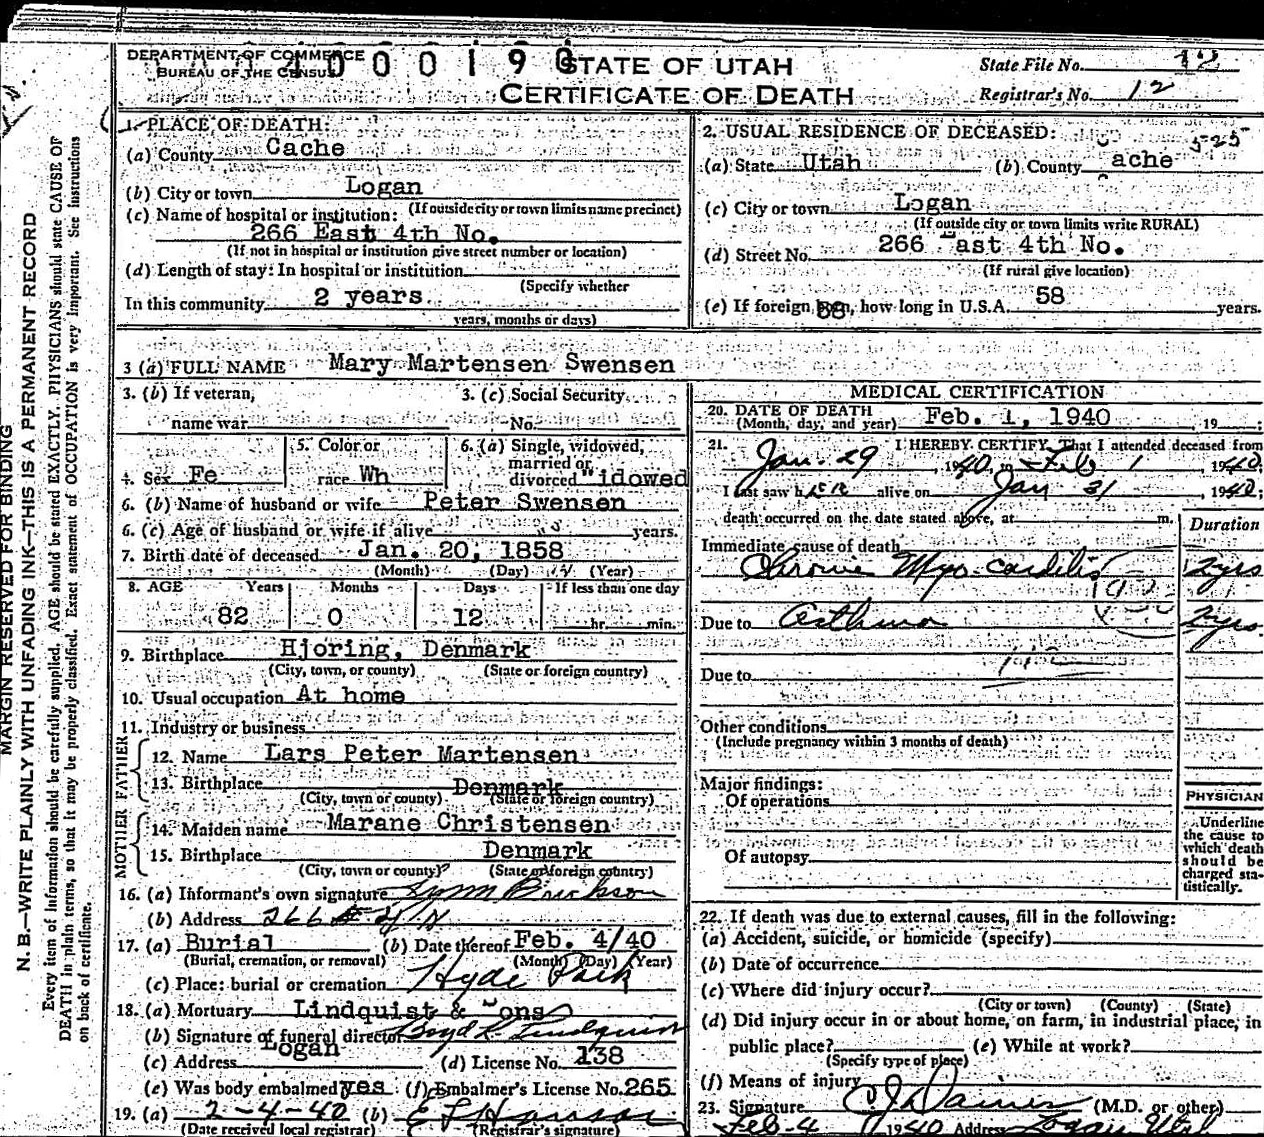 DEPARTMENT OF COMMERCE
BUREAU OF THE CENSUS
000190
STATE OF UTAH
CERTIFICATE OF DEATH
State File No. 12
Registrar's No. 12
MARGIN RESERVED FOR BINDING
N. B.—WRITE PLAINLY WITH UNFADING INK—THIS IS A PERMANENT RECORD
Every item of information should be carefully supplied. AGE should be stated EXACTLY. PHYSICIANS should state CAUSE OF
DEATH in plain terms, so that it may be properly classified. Exact statement of OCCUPATION is very important. See instructions
on back of certificate.
1. PLACE OF DEATH:
(a) County Cache
(b) City or town Logan
(If outside city or town limits name precinct)
(c) Name of hospital or institution:
266 East 4th No.
(If not in hospital or institution give street number or location)
(d) Length of stay: In hospital or institution
(Specify whether
In this community 2 years
years, months or days)
2. USUAL RESIDENCE OF DECEASED: 525
(a) State Utah (b) County Cache
(c) City or town Logan
(If outside city or town limits write RURAL)
(d) Street No. 266 East 4th No.
(If rural give location)
(e) If foreign born, how long in U.S.A. 58 years.
3 (a) FULL NAME Mary Martensen Swensen
3. (b) If veteran,
name war
3. (c) Social Security
No.
4. Sex Fe
5. Color or
race Wh
6. (a) Single, widowed,
married or
divorced Widowed
6. (b) Name of husband or wife Peter Swensen
6. (c) Age of husband or wife if alive years.
7. Birth date of deceased Jan. 20, 1858
(Month) (Day) (Year)
8. AGE Years Months Days If less than one day
82 0 12 hr. min.
9. Birthplace Hjoring, Denmark
(City, town, or county) (State or foreign country)
10. Usual occupation At home
11. Industry or business
FATHER
12. Name Lars Peter Martensen
13. Birthplace Denmark
(City, town or county) (State or foreign country)
MOTHER
14. Maiden name Marane Christensen
15. Birthplace Denmark
(City, town or county) (State or foreign country)
16. (a) Informant's own signature Lynn Erickson
(b) Address 266 E 4 N
17. (a) Burial (b) Date thereof Feb. 4/40
(Burial, cremation, or removal) (Month) (Day) (Year)
(c) Place: burial or cremation Hyde Park
18. (a) Mortuary Lindquist & Sons
(b) Signature of funeral director Boyd R. Lindquist
(c) Address Logan (d) License No. 138
(e) Was body embalmed? yes (f) Embalmer's License No. 265
19. (a) 2-4-40 (b)
(Date received local registrar) (Registrar's signature)
MEDICAL CERTIFICATION
20. DATE OF DEATH
(Month, day, and year) Feb. 1, 1940, 19 ;
21. I HEREBY CERTIFY, That I attended deceased from
Jan. 29, 1940, to Feb 1 1940;
I last saw her alive on Jan 31, 1940;
death occurred on the date stated above, at m.
Duration
Immediate cause of death
Chronic Myo-carditis 2 yrs
Due to Asthma 2 yrs.
Due to
Other conditions
(Include pregnancy within 3 months of death)
Major findings:
Of operations
Of autopsy
PHYSICIAN
Underline
the cause to
which death
should be
charged sta-
tistically.
22. If death was due to external causes, fill in the following:
(a) Accident, suicide, or homicide (specify)
(b) Date of occurrence
(c) Where did injury occur?
(City or town) (County) (State)
(d) Did injury occur in or about home, on farm, in industrial place, in
public place? (e) While at work?
(Specify type of place)
(f) Means of injury
23. Signature C J Daines (M.D. or other)
Feb-4 1940 Address Logan Utah